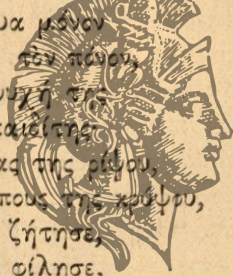 μόνον
τὸν πόνου,
ψυχή της
της ρίψου,
πους της κρύψου,
ζήτησε,
φίλησε,